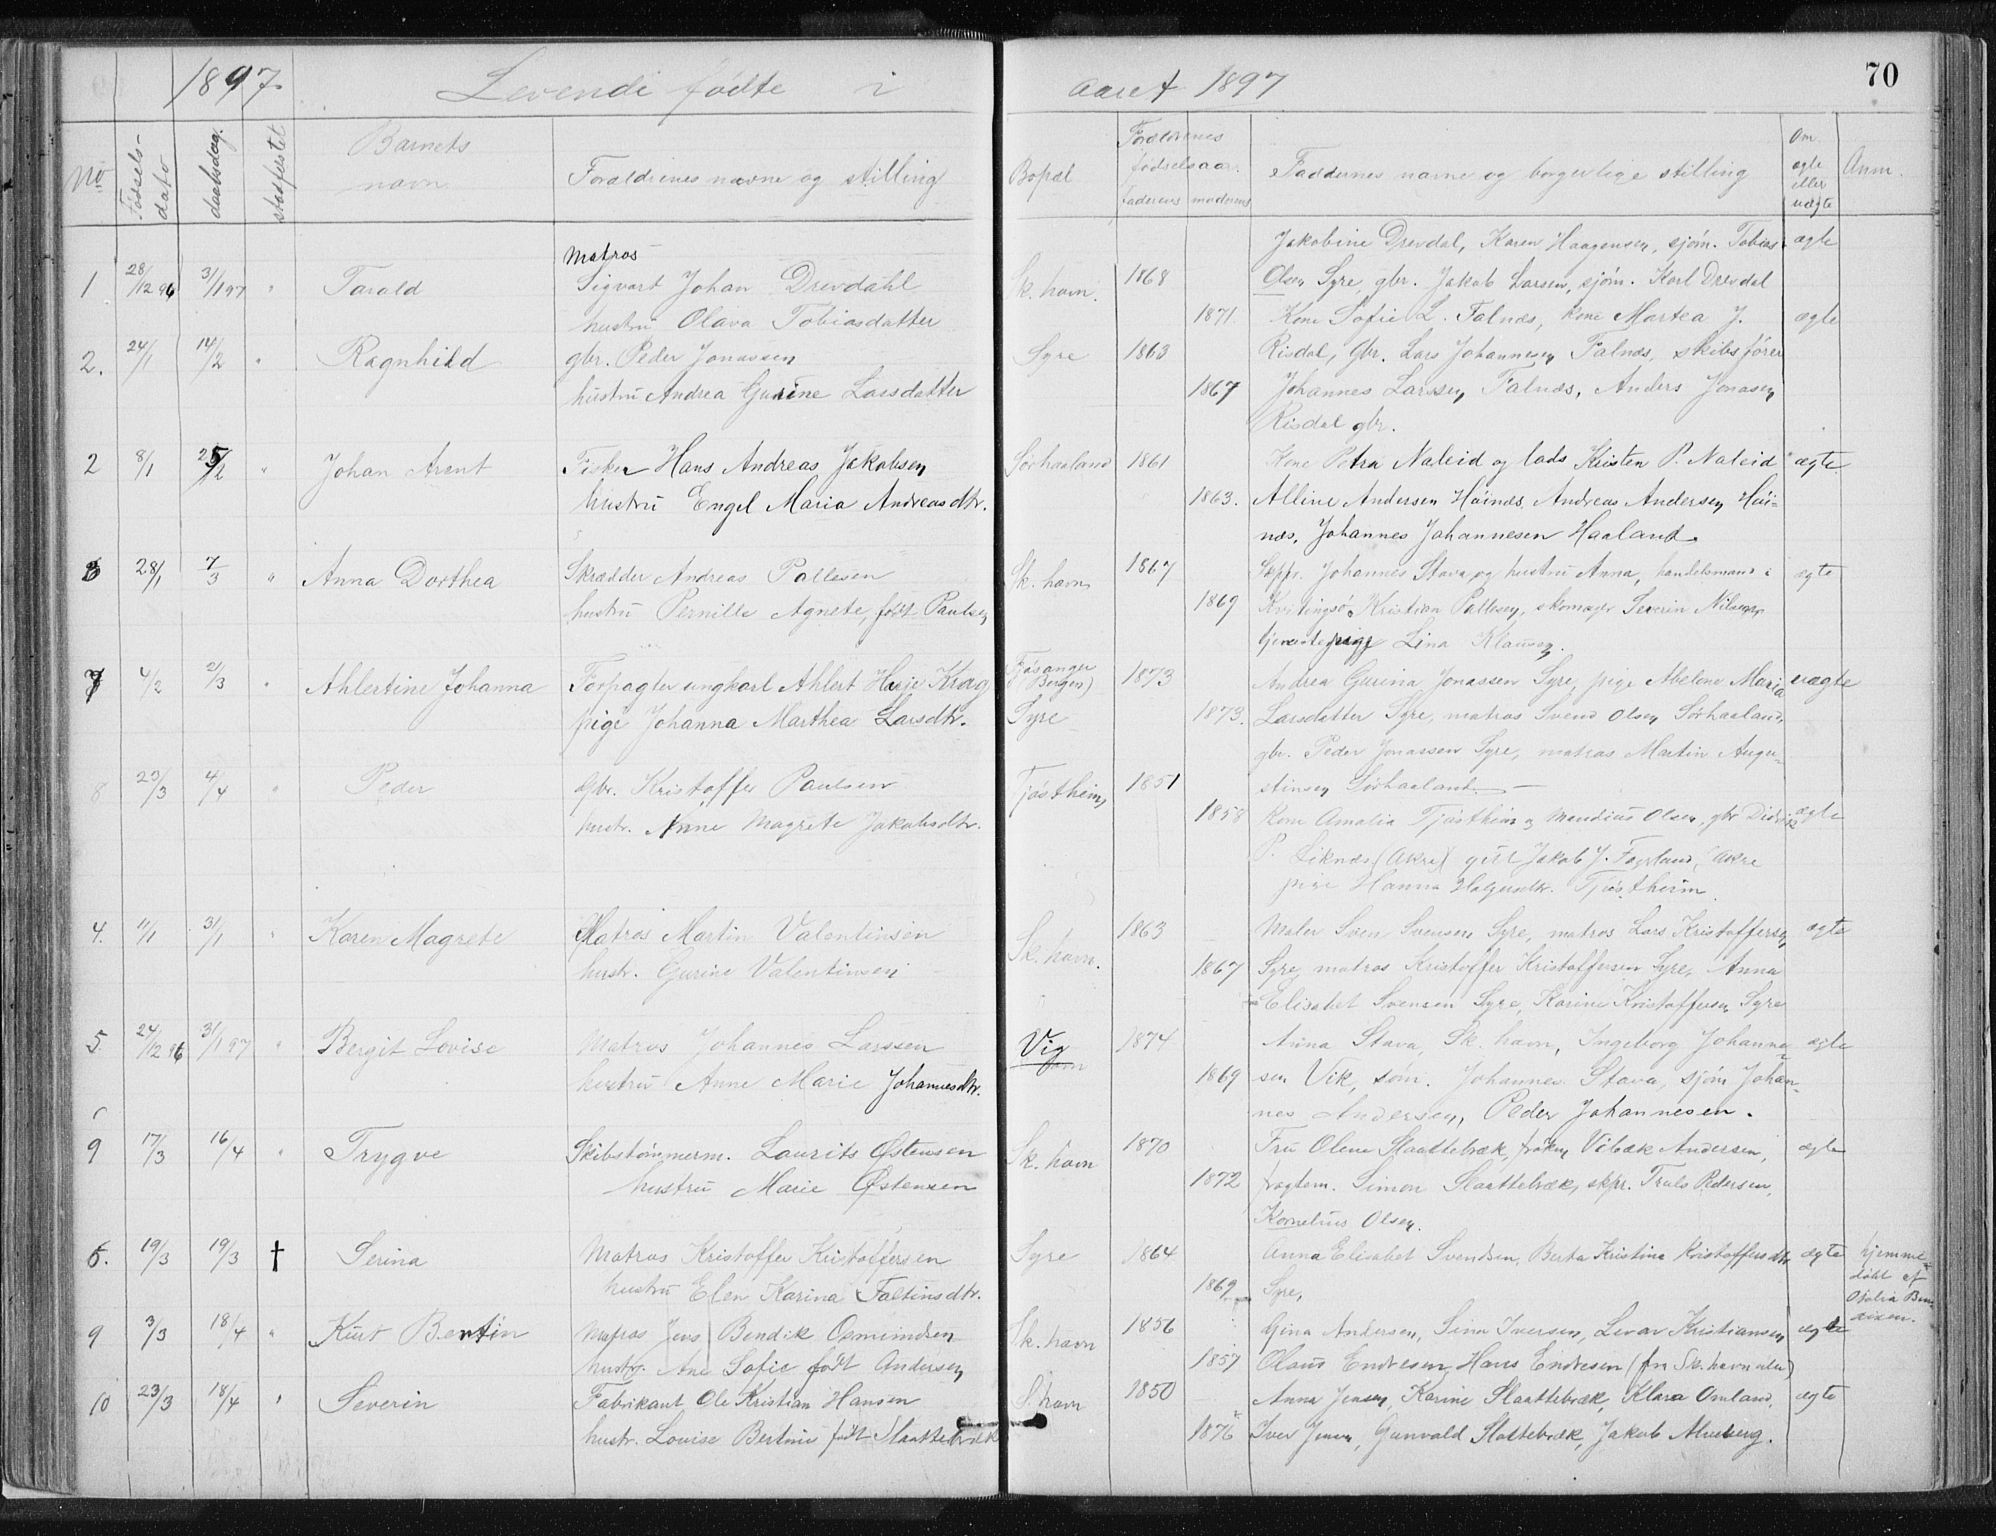 1897.
Levende fødte i aaret 1897
70
No
Fødsels-
dato
daabsdag.
stadfestet
Barnets
navn
Foraldrenes navne og stilling
Bopæl
Foraldrenes
fødselsaar.
faderens moderens
Faddernes navne og borgerlige stilling
Om
ægte
eller
uægte
Anm.
1 28/12 96 31/1 97 " Tarald
Matros
Sigvart Johan Drevdahl
hustru Olava Tobiasdatter
Sk. havn. 1868
1871.
Jakobine Drevdal, Karen Haagensen, sjøm. Tobias
Olsen Syre, gbr. Jakob Larsen, sjøm. Karl Drevdal
ægte
2. 24/1 14/2 " Ragnhild
gbr. Peder Jonassen
hustru Andrea Gurine Larsdatter
Syre 1863
1867
Kone Sofie L. Falnæs, kone Martea J.
Risdal, Gbr. Lars Johannesen Falnæs, skibsfører
Johannes Larssen Falnæs, Anders Jonasen
Risdal gbr.
ægte
2 8/1 " Johan Arent
Fisker Hans Andreas Jakobsen
hustru Engel Maria Andreasdtr.
Sørhaaland 1861
1863.
Kone Petra Naleid og lods Kristen P. Naleid
Alline Andersen Høinæs, Andreas Andersen Høi-
næs, Johannes Johannesen Haaland.
ægte
28/1 7/3 " Anna Dorthea
Skrædder Andreas Pallesen
hustru Pernille Agnete, født Paulsen
Sk. havn 1867
1869
Johannes Stava og hustru Anna, handelsmand i
Kvitingsø Kristian Pallesen, skomager Severin Nilsen,
tjenestepige Lina Klausen.
ægte
7 4/2 21/3 " Ahlertine Johanna
Forpagter ungkarl Ahlert Krag
pige Johanna Marthea Larsdtr.
Fjøsanger
(Bergen)
Syre
1873
1873.
Andrea Gurina Jonassen Syre, pige Abelone Maria
Larsdatter Syre, matros Svend Olsen Sørhaaland,
gbr. Peder Jonassen Syre, matros Martin Augu-
stinsen Sørhaaland.
uægte
8 23/3 4/4 " Peder
Gbr. Kristoffer Paulsen
hustr. Anne Magrete Jakobsdtr.
Tjøstheim 1851
1858
Kone Amalia Tjøstheim, Mandius Olsen, gbr Didrik
P. Liknæs (Akre) gift Jakob J. Fagerland, Akre
pige Hanna Helgesdtr. Tjøstheim.
ægte
4. 11/1 31/1 " Karen Magrete
Matros Martin Valentinsen
hustr. Gurine Valentinsen
Sk. havn. 1863
1867
Maler Sven Svensen Syre, matros Lars Kristoffersen
Syre, matros Kristoffer Kristoffersen Syre, Anna
Elisabet Svensen Syre, Karine Kristoffersen Syre
ægte
5 24/12 96 31/1 97 " Bergit Lovise
Matros Johannes Larssen
hustru Anne Marie Johannesdtr.
Vig 1874
1869
Anna Stava, Sk. havn, Ingeborg Johanne-
sen Vik, søm. Johannes Stava, sjøm Johan-
nes Andersen, Peder Johannesen.
ægte
9 17/3 16/4 " Trygve
Skibstømmerm. Laurits Østensen
hustru Marie Østensen
Sk. havn 1870
1872
Fru Olene Slaattebræk, frøken Vibæk Andersen,
fragtem. Simon Slaattebræk, skpr. Truls Pedersen,
Kornelius Olsen.
ægte
6. 19/3 19/3 † Serina
Matros Kristoffer Kristoffersen
hustru Elen Karina Faltinsdtr.
Syre 1864
1869
Anna Elisabet Svendsen, Berta Kristina Kristoffersdtr
Syre,
ægte
hjemme-
døbt af
9 3/3 18/4 " Kurt Bentin
Matros Jens Bendik Osmundsen
hustr. Ane Sofie født Andersen
Sk. havn 1856
1857
Gina Andersen, Sina Iversen, Levar Kristiansen
Olaus Endresen, Hans Endresen (fra Sk. havn alle)
ægte
10 23/3 18/4 " Severin
Fabrikant Ole Kristian Hansen
hustr. Louise Bertine født Slaattebræk
S. havn 1850
1876
Anna Jensen, Karine Slaattebræk, Klara Omland,
Iver Jensen, Gunvald Slattebræk, Jakob Alneberg.
ægte